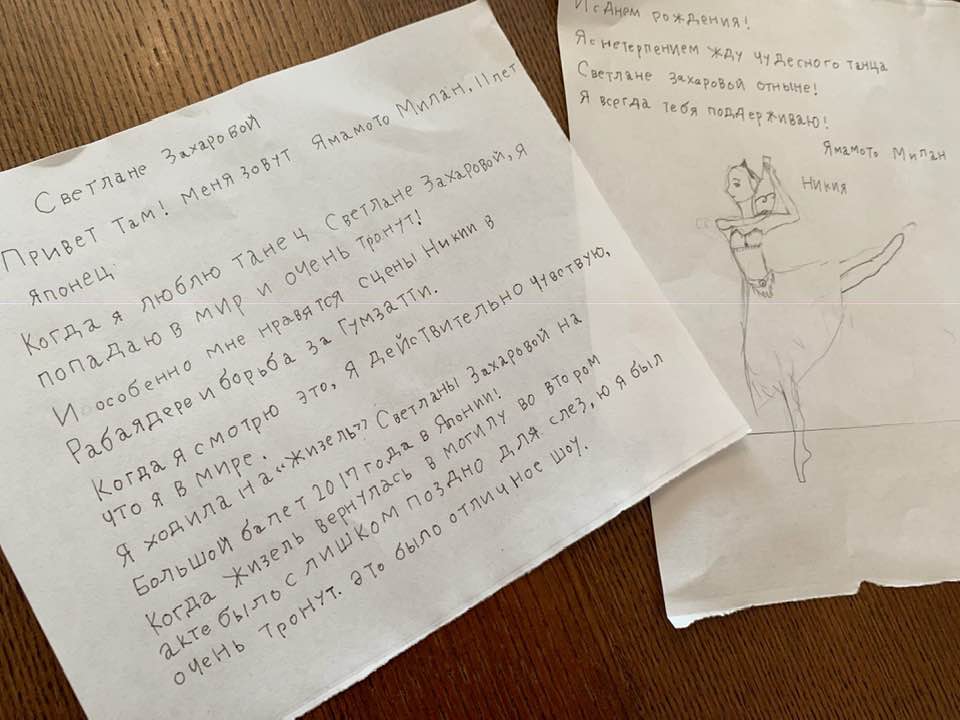 Светлане Захаровой
Привет там! меня зовут Ямамото Милан, 11 лет
японец.
Когда я люблю танец Светлане Захаровой, я
попадаю в мир и очень тронут!
И особенно мне нравятся сцены Никии в
Рабаядере и борьба за Гумзатти.
Когда я смотрю это, я действительно чувствую,
что я в мире.
Я ходила на «Жизель» Светланы Захаровой на
Большой балет 2017 года в Японии!
Когда Жизель вернулась в могилу во втором
акте было слишком поздно для слез, ю я был
очень тронут. это было отличное шоу.
И с Днем рождения!
Я с нетерпением жду чудесного танца
Светлане Захаровой отныне!
Я всегда тебя поддерживаю!
Ямамото Милан
Никия